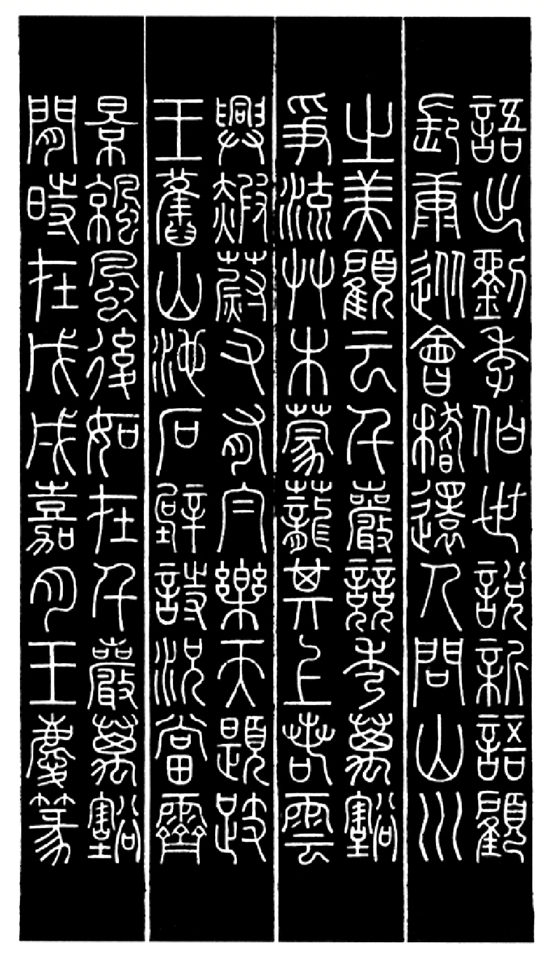 語出劉季伯世說新語顧
長康從會稽還人問山川
之美顧云千巖競秀萬壑
爭流艸木蒙蘢其上若雲
興赮蔚又有白樂天題岐
王舊山池石壁詩況當霽
景涼風後如在千巖萬壑
間時在戊戌嘉月王慶篆